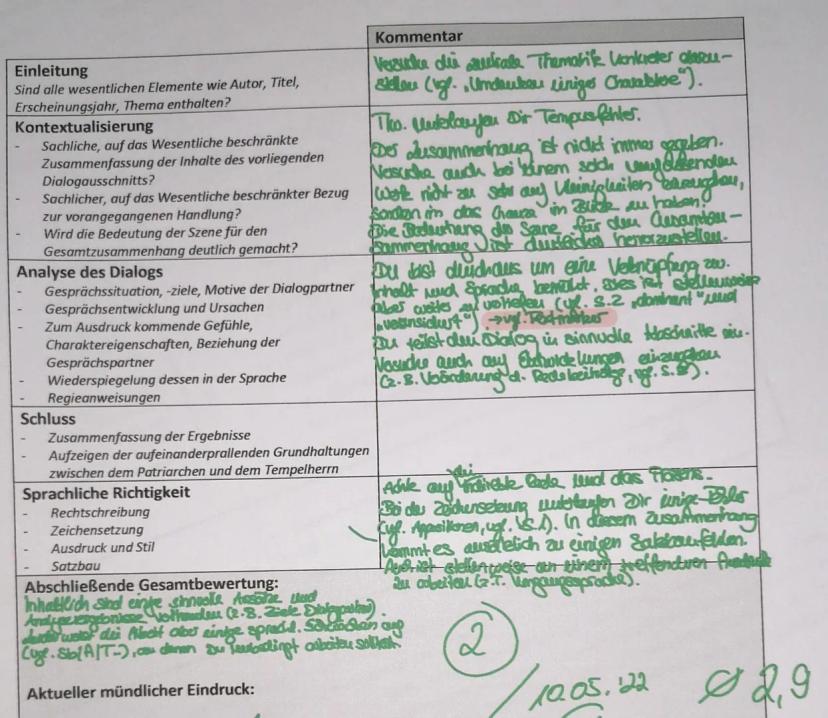 Kommentar
Einleitung
Sind alle wesentlichen Elemente wie Autor, Titel,
Erscheinungsjahr, Thema enthalten?
Versuche die zentrale Thematik konkreter darzu-
stellen (vgl. „Umdenken einiges Charaktere").
Kontextualisierung
- Sachliche, auf das Wesentliche beschränkte
Zusammenfassung der Inhalte des vorliegenden
Dialogausschnitts?
- Sachlicher, auf das Wesentliche beschränkter Bezug
zur vorangegangenen Handlung?
- Wird die Bedeutung der Szene für den
Gesamtzusammenhang deutlich gemacht?
unterlaufen Dir Tempusfehler.
Der Zusammenhang ist nicht immer gegeben.
Versuche auch bei einem solch umfassenden
Werk nicht zu sehr auf Kleinigkeiten einzugehen,
sondern das Ganze in Blick zu haben!
Die Bedeutung der Szene für den Gesamtzu-
sammenhang ist deutlicher herauszustellen.
Analyse des Dialogs
- Gesprächssituation, -ziele, Motive der Dialogpartner
- Gesprächsentwicklung und Ursachen
- Zum Ausdruck kommende Gefühle,
Charaktereigenschaften, Beziehung der
Gesprächspartner
- Wiederspiegelung dessen in der Sprache
- Regieanweisungen
Du bist durchaus um eine Verknüpfung zw.
Inhalt und Sprache bemüht. Dies ist stellenweise
aber weiter zu vertiefen (vgl. S.2 „dominant" und
„verunsichert") → vgl. Textmarker
Du teilst den Dialog in sinnvolle Abschnitte ein.
Versuche auch auf einzugehen
(z.B. d. vgl. S. ).
Schluss
- Zusammenfassung der Ergebnisse
- Aufzeigen der aufeinanderprallenden Grundhaltungen
zwischen dem Patriarchen und dem Tempelherrn
Sprachliche Richtigkeit
- Rechtschreibung
- Zeichensetzung
- Ausdruck und Stil
- Satzbau
Achte auf die indirekte Rede und das
Bei der Zeichensetzung unterlaufen Dir einige Fehler
(vgl. Appositionen, vgl. S.1). In diesem Zusammenhang
kommt es zu einigen Satzbaufehlern.
stellenweise an einem treffenderen Ausdruck
zu arbeiten (z.T. Umgangssprache).
Abschließende Gesamtbewertung:
Inhaltlich sind einige sinnvolle Ansätze und
Analyseergebnisse vorhanden (z.B. Ziele Dialogpartner).
weist die Arbeit aber einige sprachl. Schwächen auf
(vgl. Sb/A/T–), an denen Du unbedingt arbeiten solltest.
2
Aktueller mündlicher Eindruck:
/ 10.05.'22 Ø 2,9